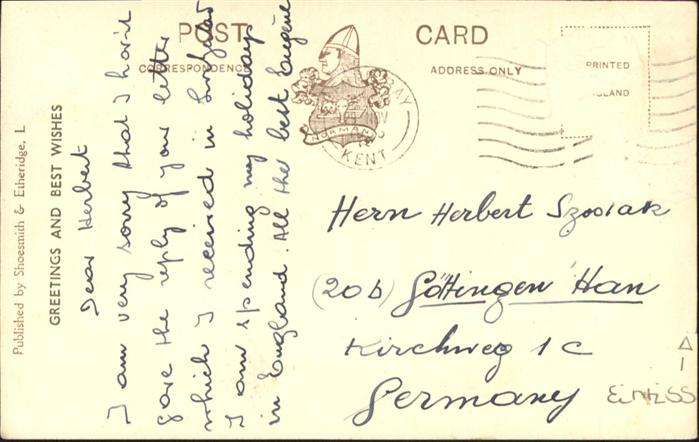 POST CARD
CORRESPONDENCE
ADDRESS ONLY
PRINTED
NORMAN
KENT
Published by Shoesmith & Etheridge, L
GREETINGS AND BEST WISHES
Dear Herbert
I am very sorry that I have
gave the reply of your letter
which I received in
I am spending my holidays
in England. All the best Eugène
Herrn Herbert
(20b) Göttingen Han
Kirchweg 1c
Germany